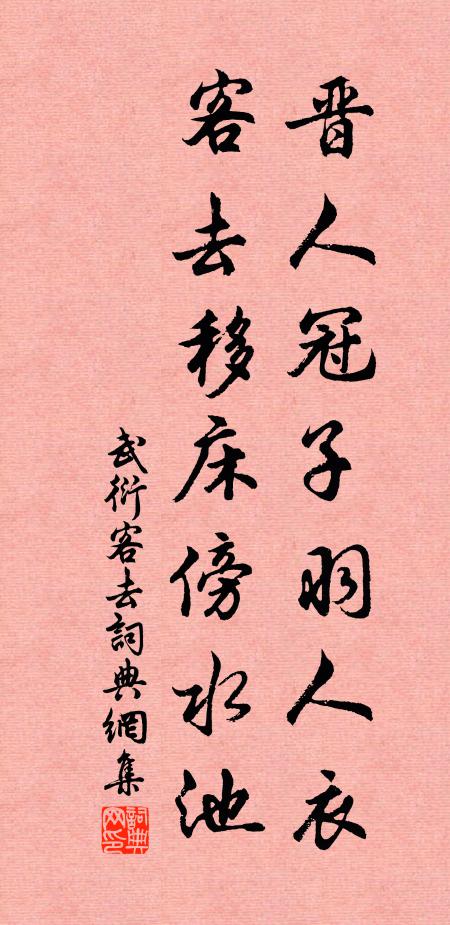 晋人冠子羽人衣
客去移床傍水池
武衍客去詞典網集
詞典网印